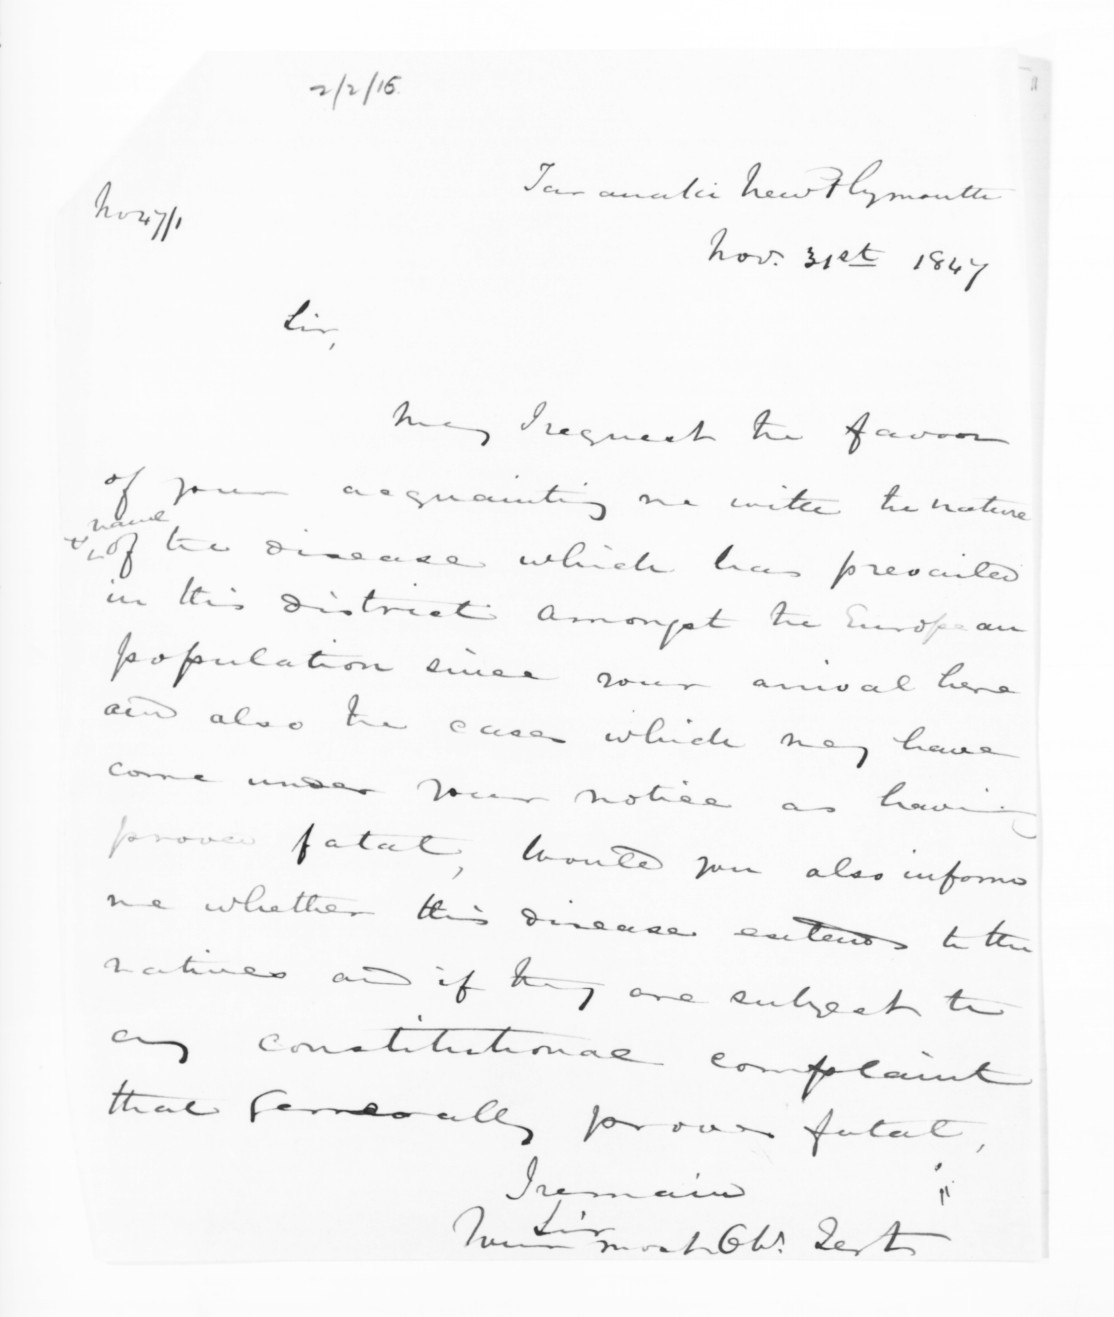 2/2/15
Taranaki New Plymouth
No 47/1
Nov. 31st 1847
Sir,
May I request the favor
of your acquainting me with the nature
& name
of the disease which has prevailed
in this district amongst the European
population since your arrival here
and also the cases which may have
come under your notice as having
proved fatal, Would you also inform
me whether this disease extends to the
natives and if they are subject to
any constitutional complaint
that Generally proves fatal,
I remain
Sir
Your most Obt. Sert